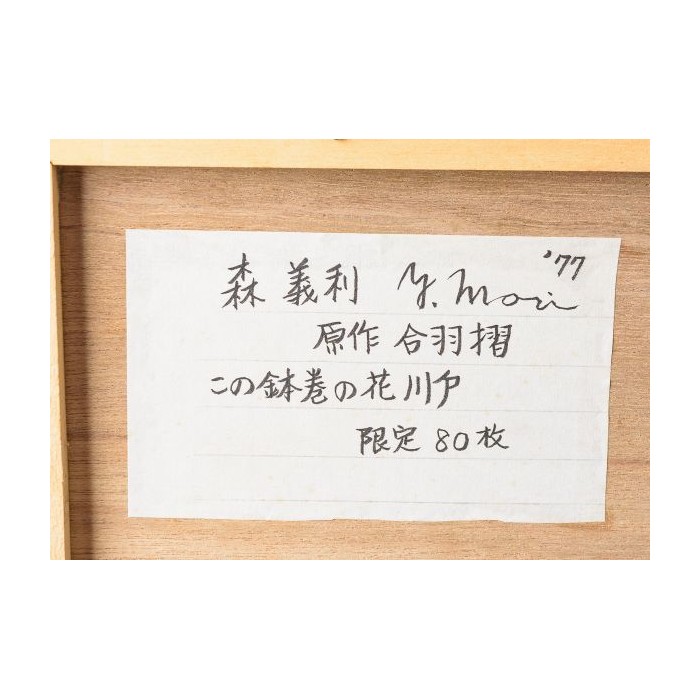 森 義利 Y. Mori '77
原作 合羽摺
この鉢巻の花川戸
限定 80枚